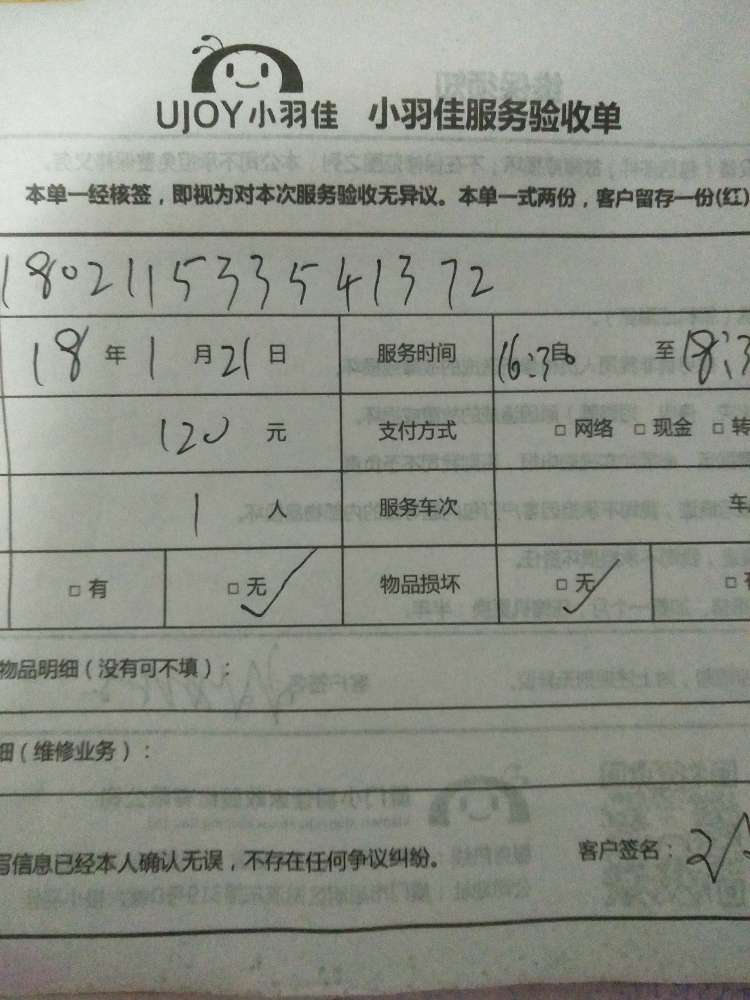 UJOY小羽佳 小羽佳服务验收单
本单一经核签，即视为对本次服务验收无异议。本单一式两份，客户留存一份(红)
180211533541372
18 年 1 月 21 日 服务时间 16:30 自 至 18:3
120 元 支付方式 □ 网络 □ 现金 □ 转
1 人 服务车次 车
□ 有 □ 无 物品损坏 □ 无 □
物品明细（没有可不填）：
细（维修业务）：
写信息已经本人确认无误，不存在任何争议纠纷。 客户签名：